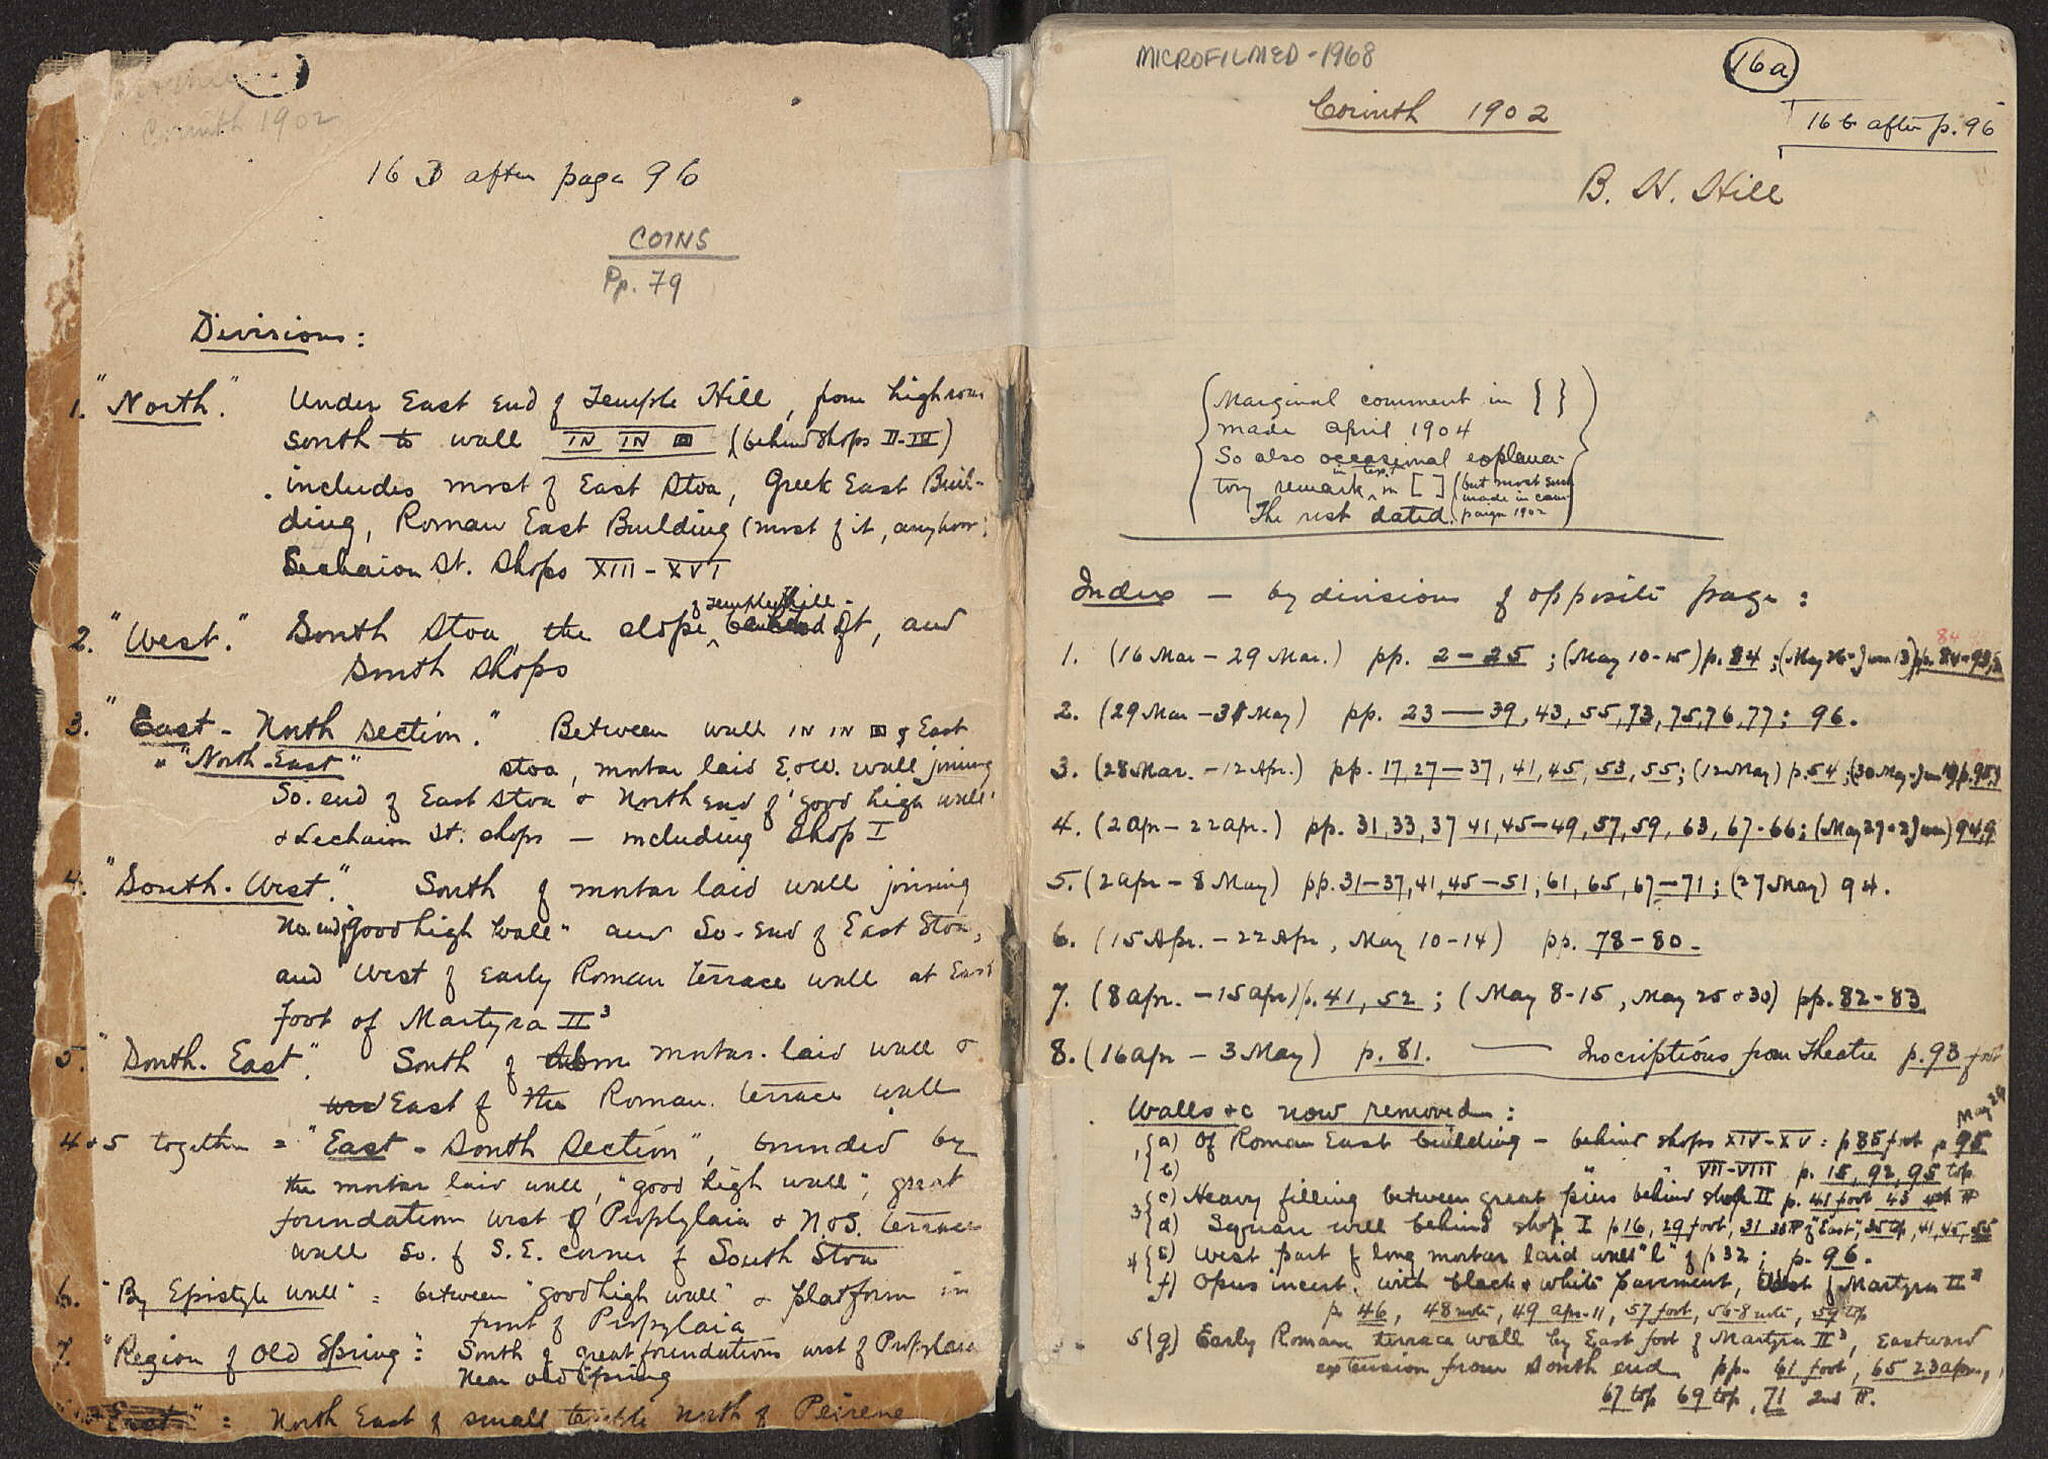 Corinth 1902
16 B after page 96
COINS
Pp. 79
Divisions:
1. "North." Under East end of Temple Hill, from high
south to wall IN IN (behind shops II-III)
includes most of East Stoa, Greek East Buil-
ding, Roman East Building (most of it, anyhow;
Lechaion St. Shops XIII-XVI
2. "West." South Stoa, the slope of Temple Hill behind it, and
South Shops
3. "East - North Section." Between wall IN IN of East
" "North-East" Stoa, mortar laid E.&W. wall joining
So. end of East Stoa & North end of 'good high wall'
& Lechaion St. shops — including Shop I
4. "South-West." South of mortar laid wall joining
No. end of "good high wall" and So. end of East Stoa,
and West of early Roman terrace wall at East
foot of Martyra II³
5. "South-East." South of mortar-laid wall &
East of the Roman terrace wall
4+5 together = "East - South Section", bounded by
the mortar laid wall, "good high wall", great
foundation west of Propylaia & N.&S. terrace
wall So. of S.E. corner of South Stoa
6. "By Epistyle Wall" = between "good high wall" & platform in
front of Propylaia
7. "Region of Old Spring": South of great foundations west of Propylaia
Near old Spring
"East" = North East of small temple North of Peirene
MICROFILMED - 1968
16a
Corinth 1902
16 b after p. 96
B. H. Hill
Marginal comment in { }
made April 1904
So also occasional explana-
tory remark in text in [ ] (but most such
made in cam-
paign 1902)
The rest dated.
Index — by divisions of opposite page:
1. (16 Mar - 29 Mar.) pp. 2-25; (May 10-15) p. 84; (May 26-Jun 13) pp. 84-93
84
2. (29 Mar - 31 May) pp. 23—39, 43, 55, 73, 75, 76, 77; 96.
3. (28 Mar. - 12 Apr.) pp. 17, 27-37, 41, 45, 53, 55; (12 May) p. 54; (30 May-Jun) p. 95
4. (2 Apr - 22 Apr.) pp. 31, 33, 37 41, 45-49, 57, 59, 63, 67-66; (May 27-2 Jun) 94
5. (2 Apr - 8 May) pp. 31-37, 41, 45-51, 61, 65, 67-71; (27 May) 94.
6. (15 Apr. - 22 Apr, May 10-14) pp. 78-80.
7. (8 Apr. - 15 Apr) p. 41, 52; (May 8-15, May 25 & 30) pp. 82-83
8. (16 Apr - 3 May) p. 81. — Inscriptions from Theatre p. 93 foot
Walls &c now removed:
1 {a) Of Roman East building - behind shops XIV-XV: p 85 foot p 95 May 29
b) " " VII-VIII p. 15, 92, 95 top
3 {c) Heavy filling between great piers behind shop II p. 41 foot 43
d) Square well behind shop I p 16, 29 foot, 31 "East", 35 top, 41, 45, 55
4 {e) West part of long mortar laid wall "l" of p 32; p. 96.
f) Opus incert. with black & white pavement, West of Martyra II³
p 46, 48 note, 49 Apr. 11, 57 foot, 56-8 note, 59 top
5 {g) Early Roman terrace wall by East foot of Martyra II³, Eastward
extension from South end pp. 61 foot, 65 23 Apr.,
67 top 69 top, 71 2nd ¶.